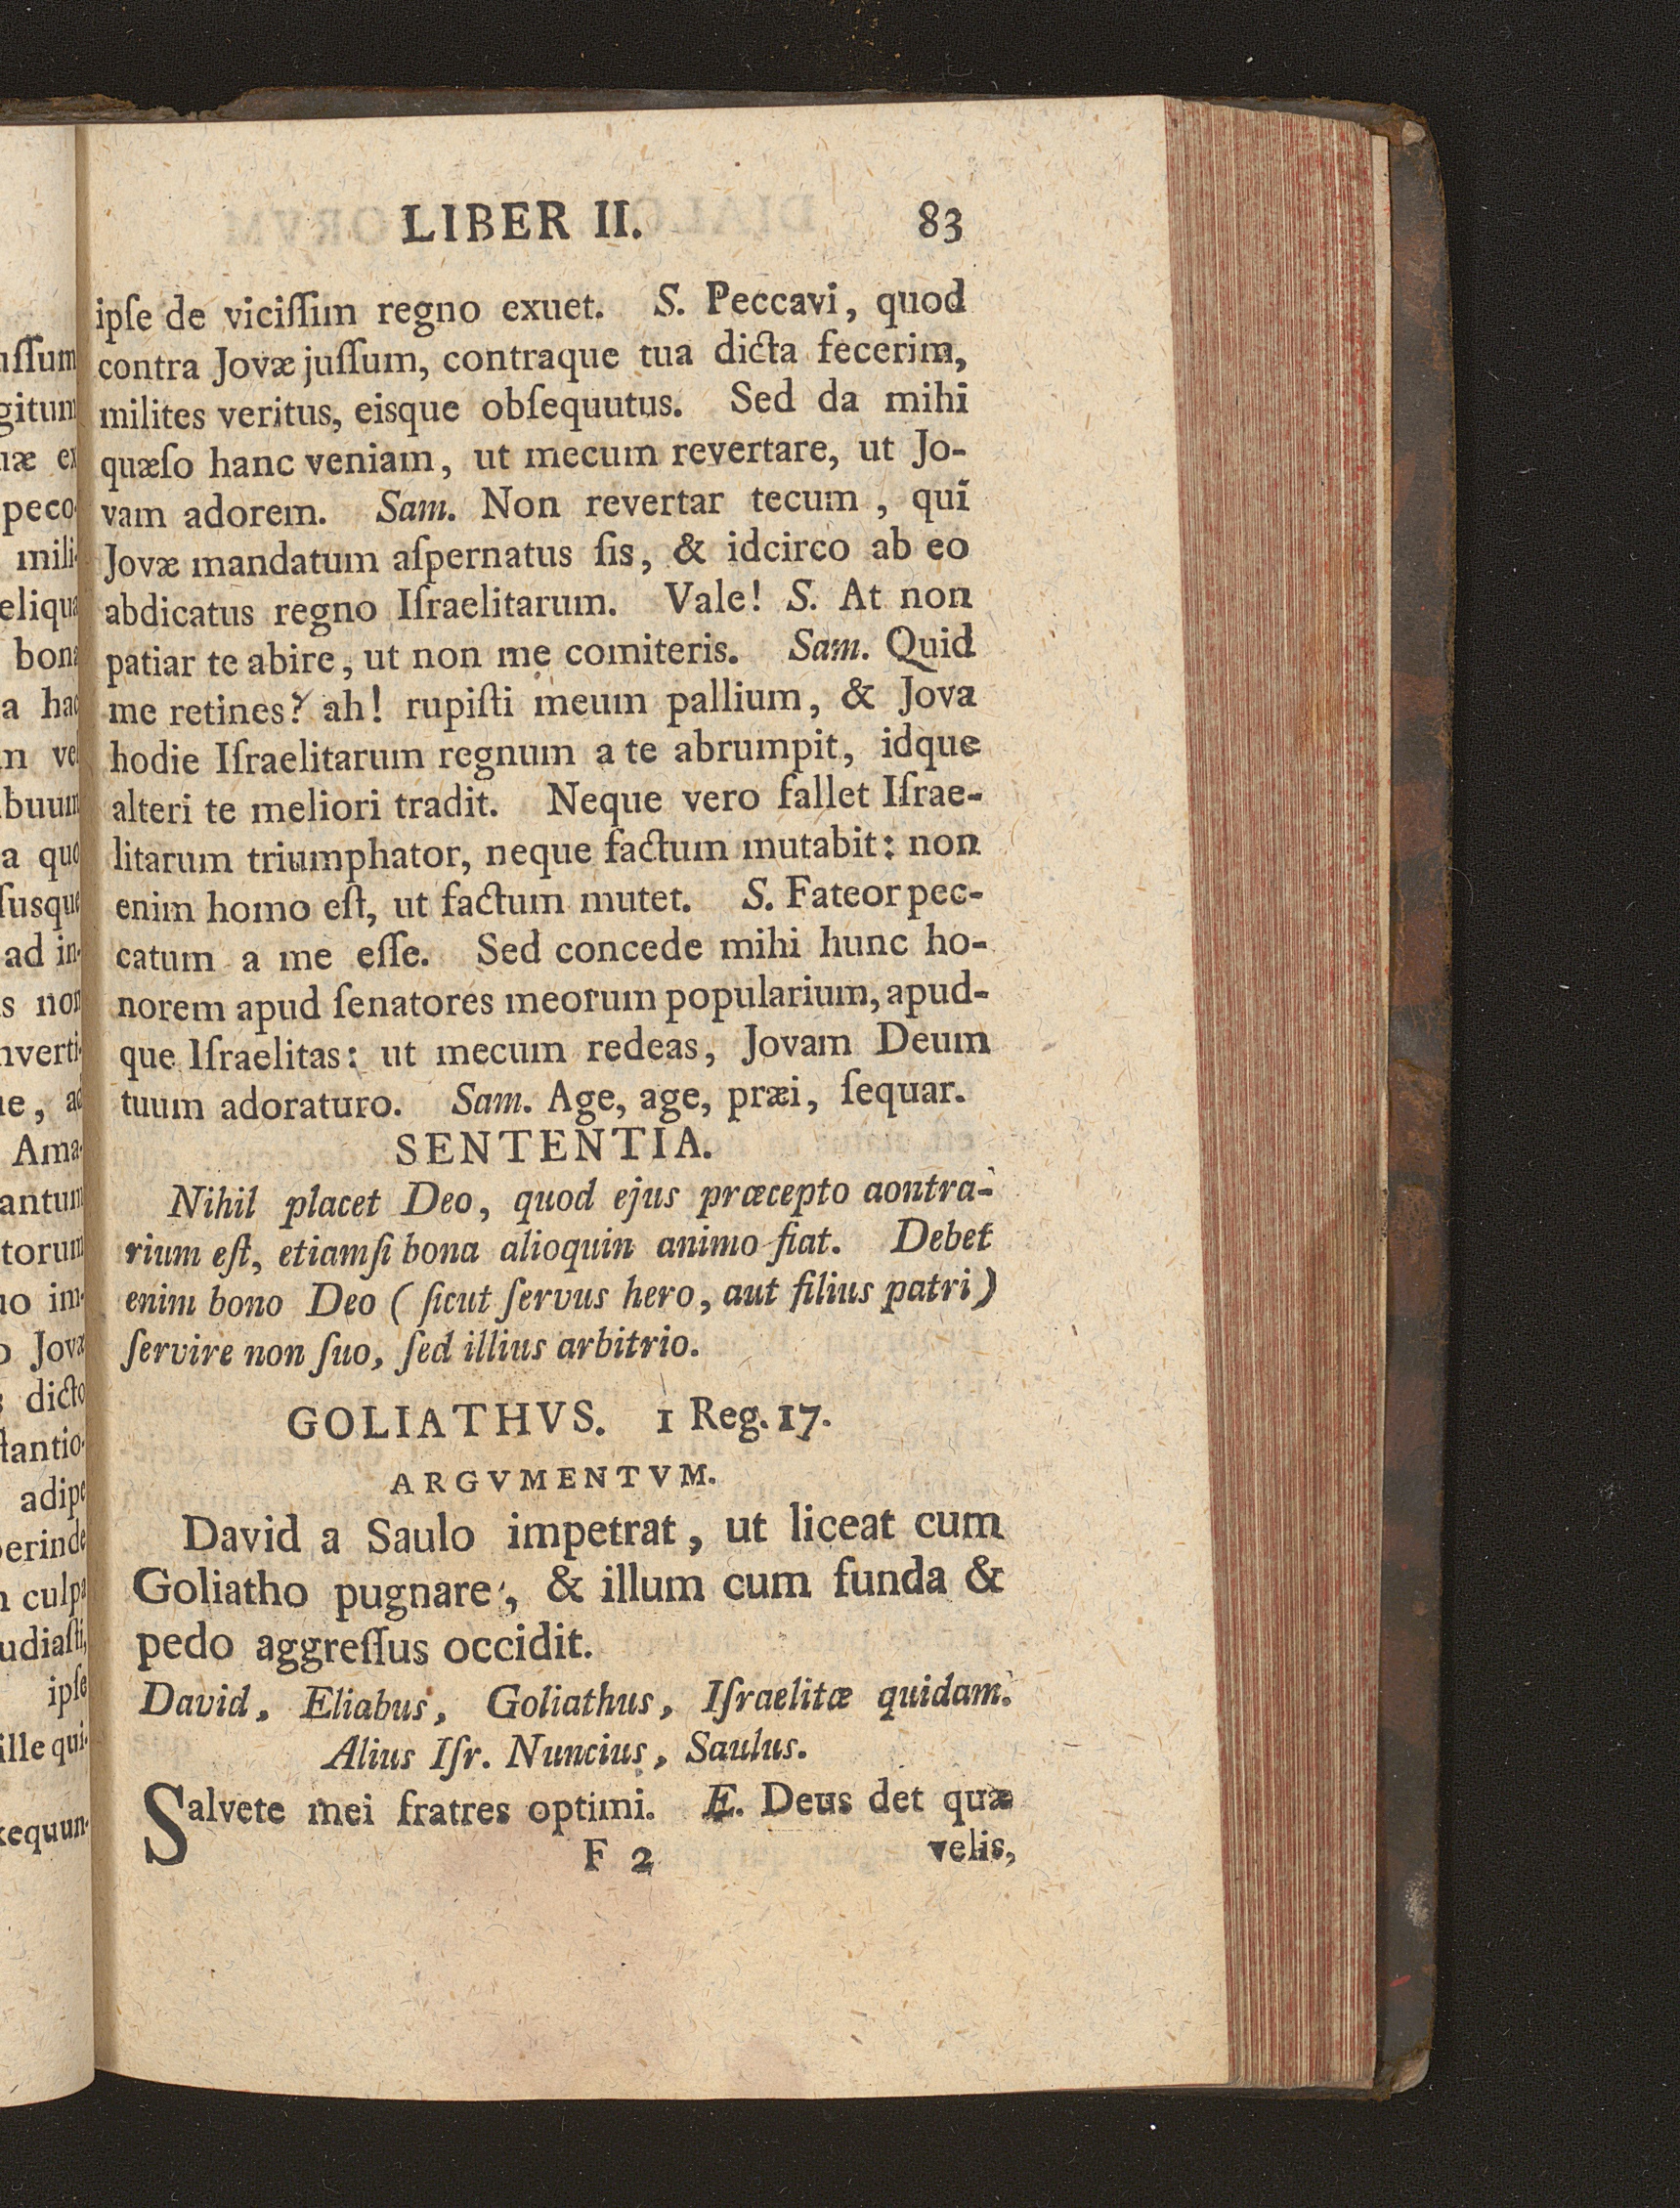 LIBER II. 83
ipſe de viciſſim regno exuet. S. Peccavi, quod
contra Jovæ juſſum, contraque tua dicta fecerim,
milites veritus, eisque obſequutus. Sed da mihi
quæſo hanc veniam, ut mecum revertare, ut Jo-
vam adorem. Sam. Non revertar tecum, qui
Jovæ mandatum aſpernatus ſis, & idcirco ab eo
abdicatus regno Iſraelitarum. Vale! S. At non
patiar te abire, ut non me comiteris. Sam. Quid
me retines? ah! rupiſti meum pallium, & Jova
hodie Iſraelitarum regnum a te abrumpit, idque
alteri te meliori tradit. Neque vero fallet Iſrae-
litarum triumphator, neque factum mutabit: non
enim homo eſt, ut factum mutet. S. Fateor pec-
catum a me eſſe. Sed concede mihi hunc ho-
norem apud ſenatores meorum popularium, apud-
que Iſraelitas: ut mecum redeas, Jovam Deum
tuum adoraturo. Sam. Age, age, præi, ſequar.
SENTENTIA.
Nihil placet Deo, quod ejus præcepto aontra-
rium eſt, etiamſi bona alioquin animo fiat. Debet
enim bono Deo (ſicut ſervus hero, aut filius patri)
ſervire non ſuo, ſed illius arbitrio.
GOLIATHVS. 1 Reg. 17.
ARGVMENTVM.
David a Saulo impetrat, ut liceat cum
Goliatho pugnare, & illum cum funda &
pedo aggreſſus occidit.
David, Eliabus, Goliathus, Iſraelitæ quidam.
Alius Iſr. Nuncius, Saulus.
Salvete mei fratres optimi. E. Deus det quæ
F 2 velis,